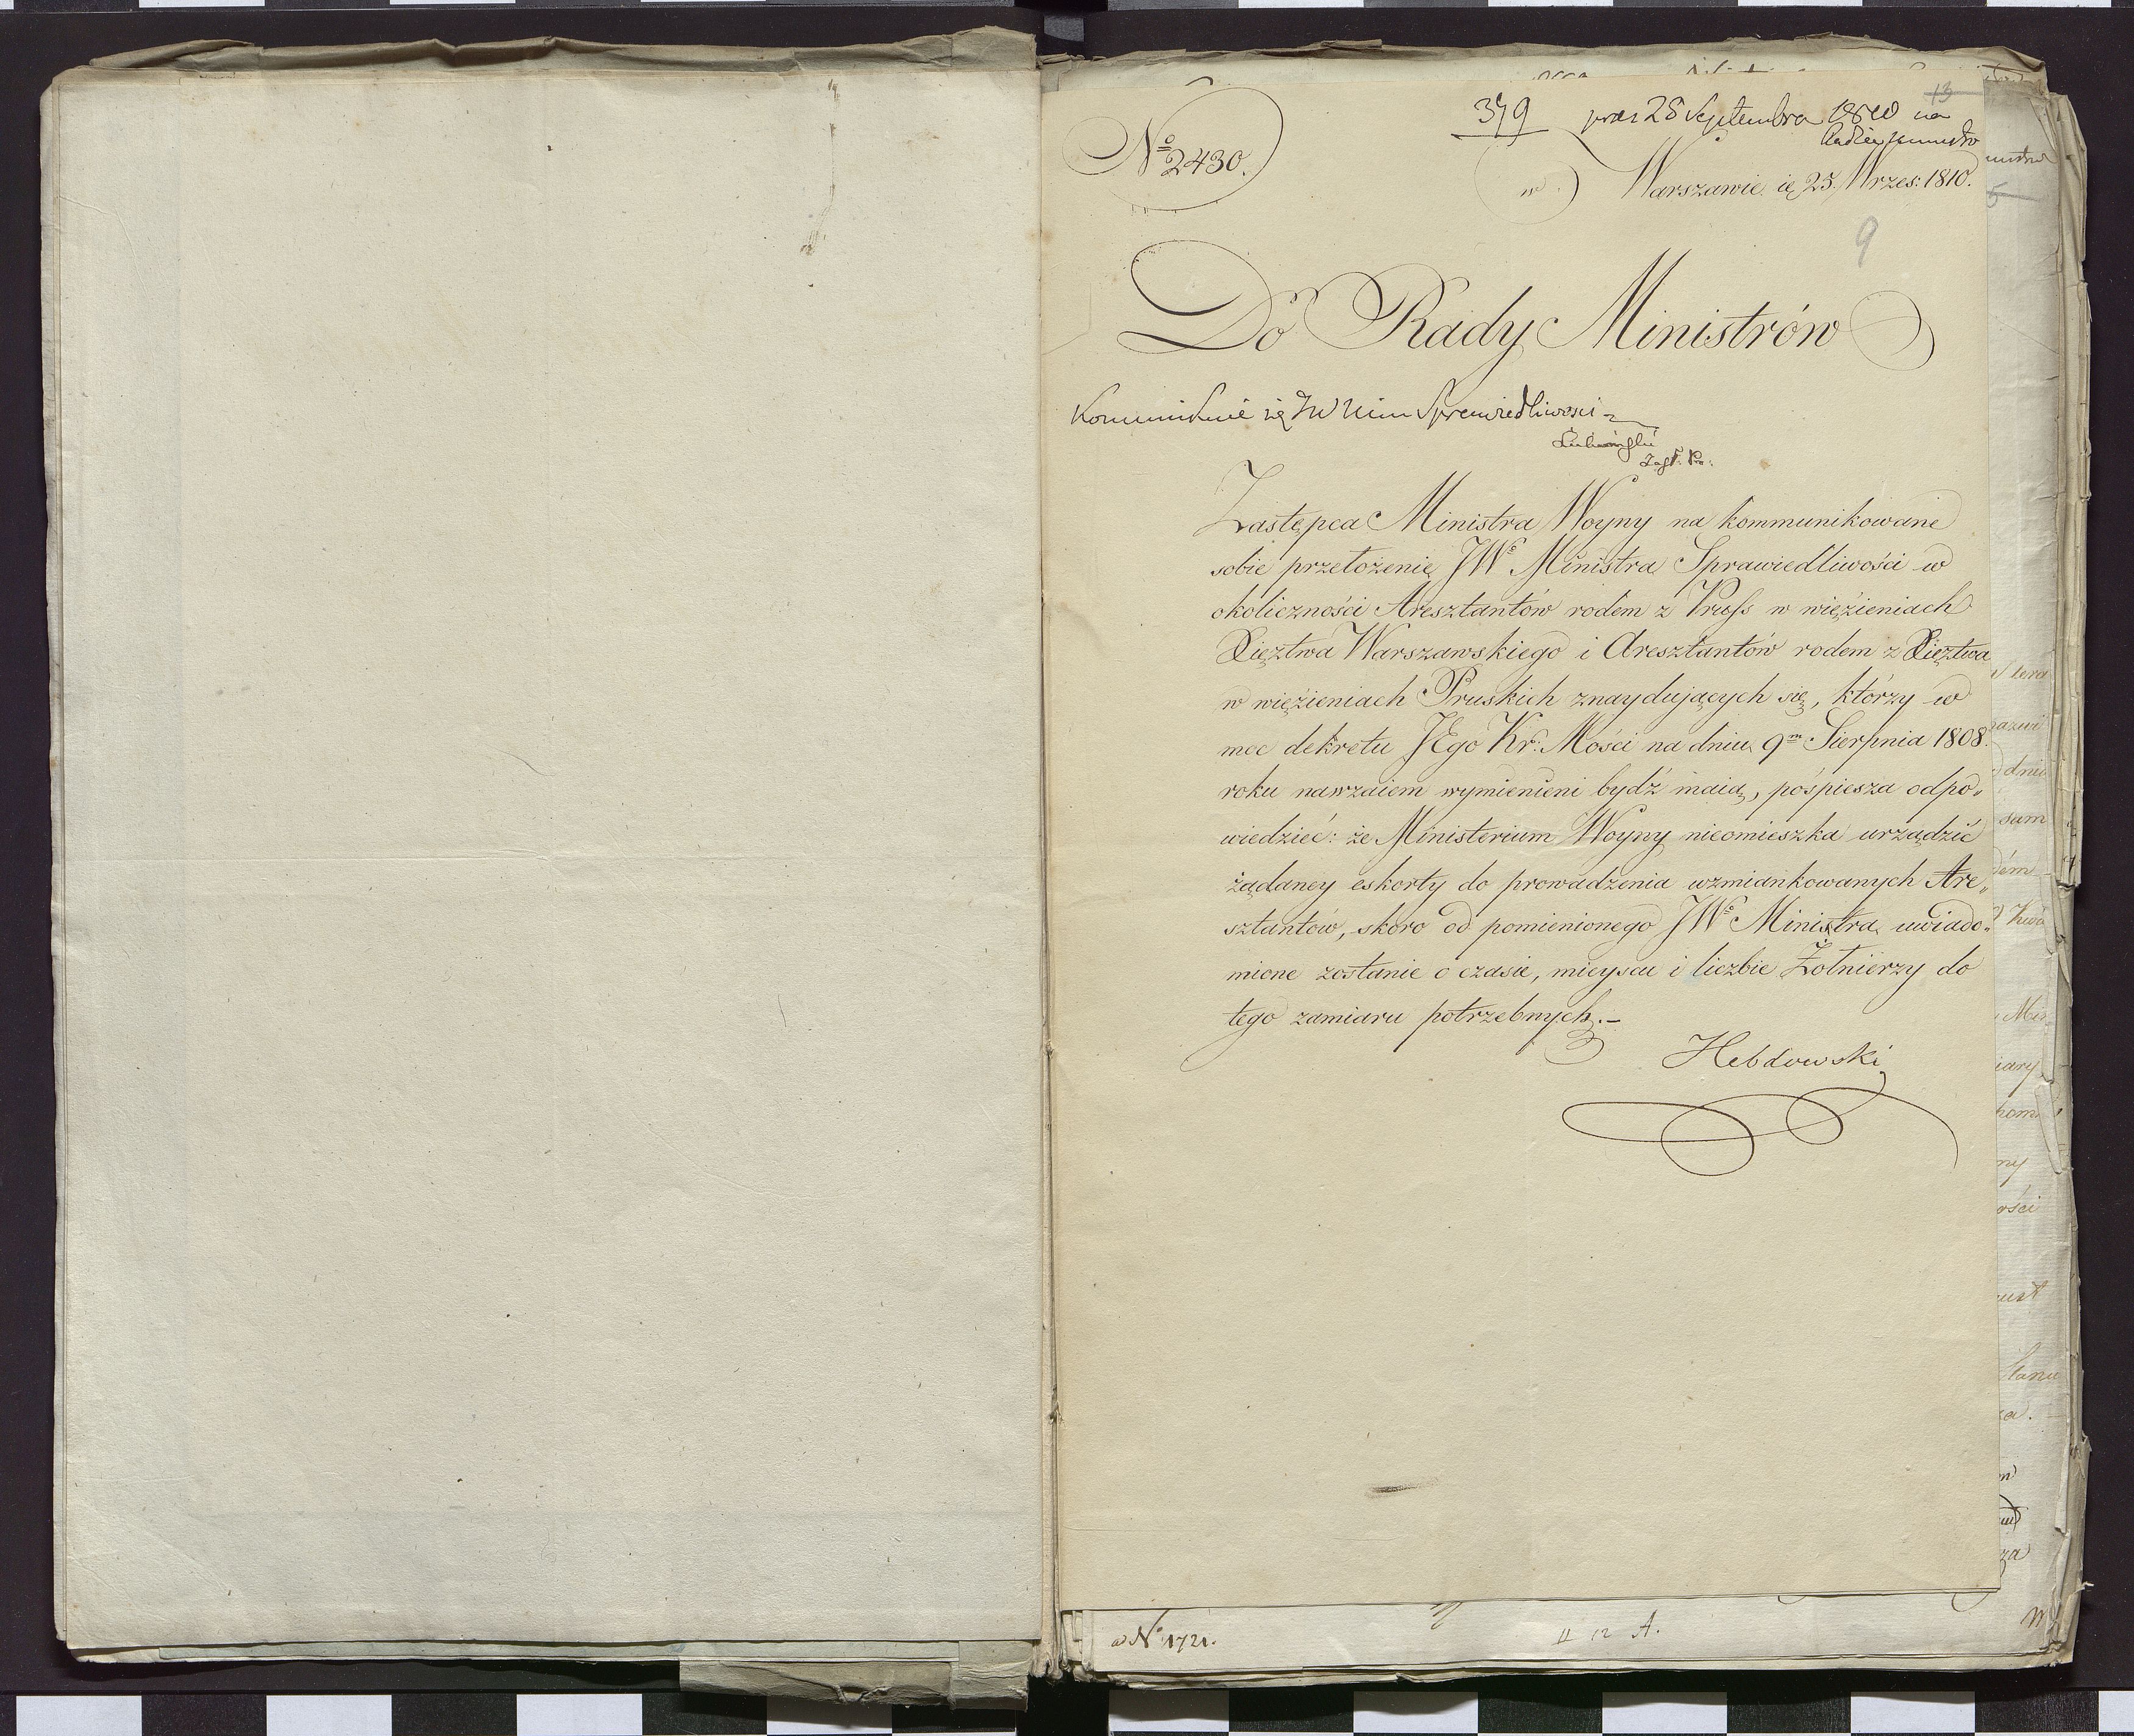 13
379 præs 28 Septembra 1810 na
Radzie
No 2430.
w Warszawie d. 25. Wrześ: 1810.
9
Do Rady Ministrów
Kommunikuie się JW Minn Sprawiedliwosci
Zast. Pr.
Zastępca Ministra Woyny na kommunikowane
sobie przełożenie JWo Ministra Sprawiedliwości w
okoliczności Aresztantów rodem z Pruss w więzieniach
Xięztwa Warszawskiego i Aresztantów rodem z Xięztwa
w więzieniach Pruskich znaydujących się, którzy w
moc dekretu JEgo Kr: Mości na dniu 9m Sierpnia 1808.
roku nawzaiem wymienieni bydź maią, pośpiesza odpo„
wiedzieć: że Ministerium Woyny nieomieszka urządzić
żądaney eskorty do prowadzenia wzmiankowanych Are„
sztantów, skoro od pomienionego JWo Ministra uwiado„
mione zostanie o czasie, mieyscu i liczbie Żołnierzy do
tego zamiaru potrzebnych.–
Hebdowski
No 1721.
A.